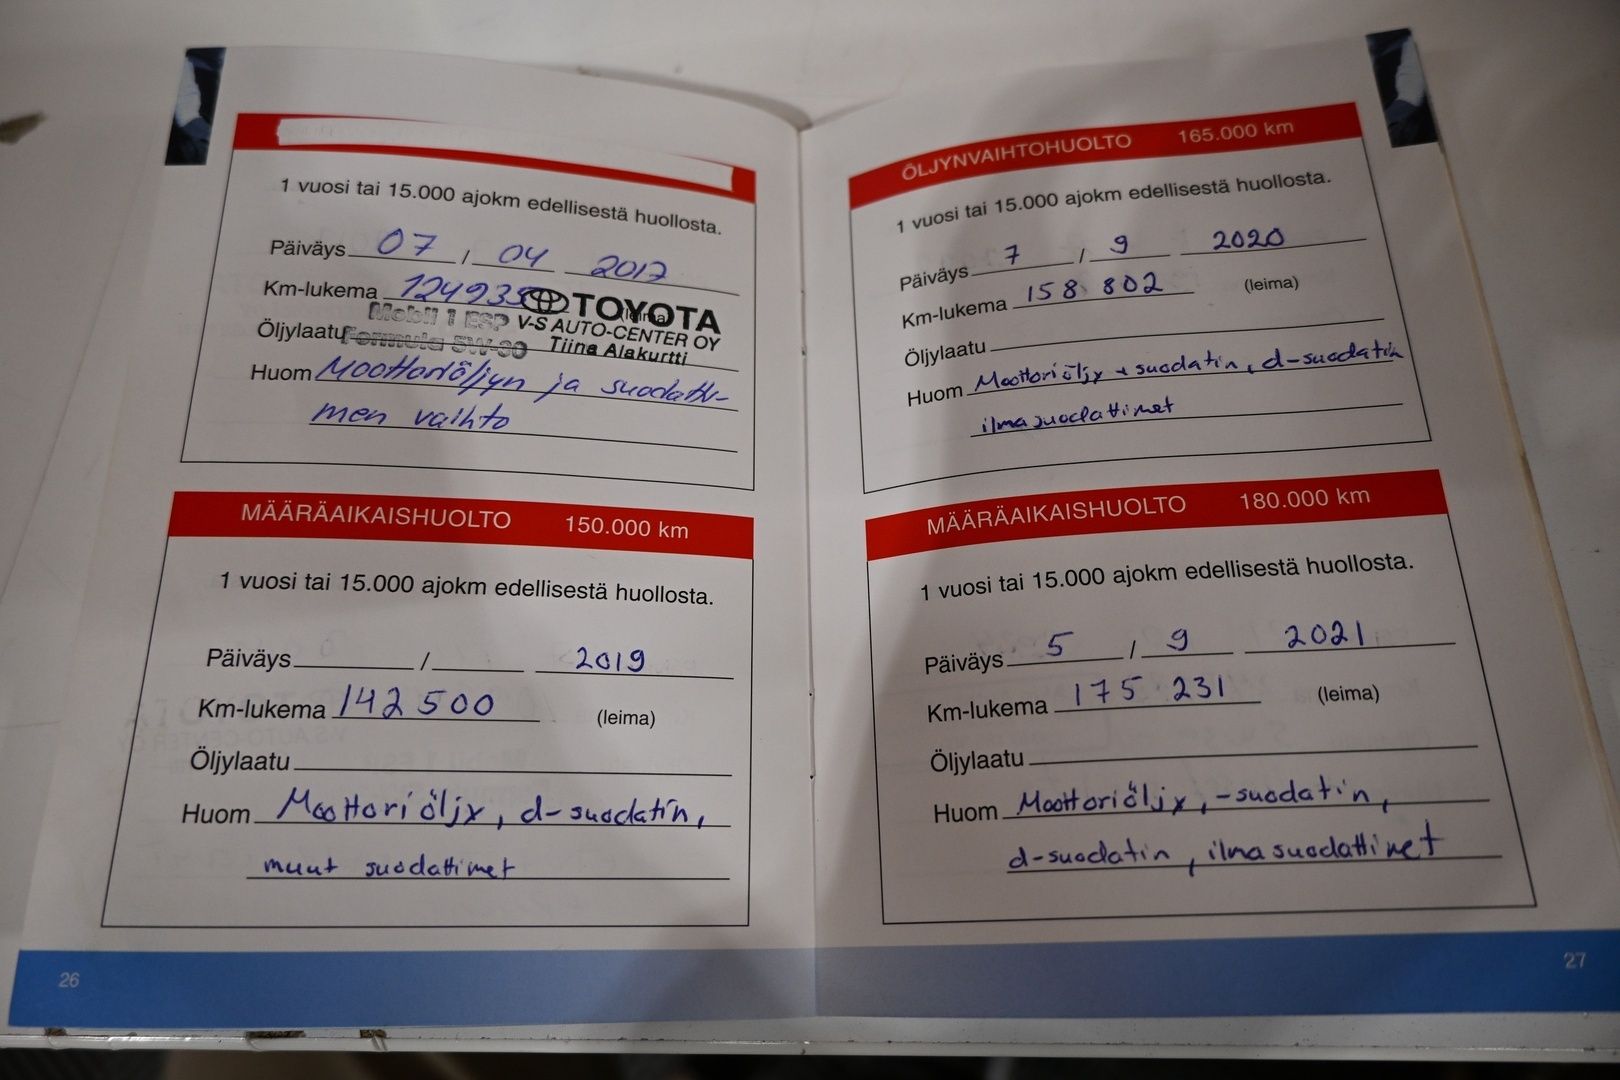 1 vuosi tai 15.000 ajokm edellisestä huollosta.
Päiväys 07 / 04 2017
Km-lukema 124935 (leima)
TOYOTA
V-S AUTO-CENTER OY
Tiina Alakurtti
Öljylaatu Mobil 1 ESP
Formula 5W-30
Huom Moottoriöljyn ja suodatti-
men vaihto
MÄÄRÄAIKAISHUOLTO 150.000 km
1 vuosi tai 15.000 ajokm edellisestä huollosta.
Päiväys / 2019
Km-lukema 142 500 (leima)
Öljylaatu
Huom Moottoriöljy, d-suodatin,
muut suodattimet
26
ÖLJYNVAIHTOHUOLTO 165.000 km
1 vuosi tai 15.000 ajokm edellisestä huollosta.
Päiväys 7 / 9 2020
Km-lukema 158 802 (leima)
Öljylaatu
Huom Moottoriöljy + suodatin, d-suodatin
ilmasuodattimet
MÄÄRÄAIKAISHUOLTO 180.000 km
1 vuosi tai 15.000 ajokm edellisestä huollosta.
Päiväys 5 / 9 2021
Km-lukema 175 231 (leima)
Öljylaatu
Huom Moottoriöljy, -suodatin,
d-suodatin, ilmasuodattimet
27